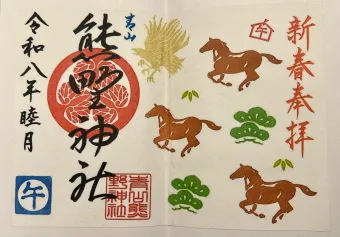 新春奉拝
午
青山
能野神社
青山熊
野神社
令和八年睦月
午